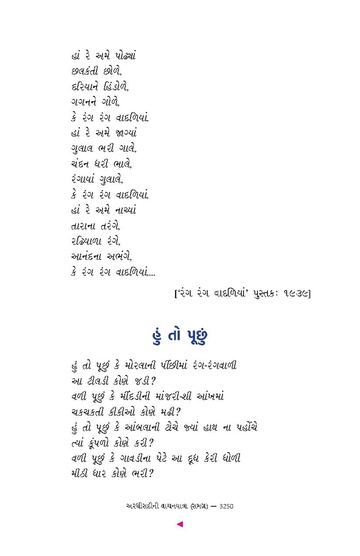 હાં રે અમે પોઢ્યાં
છલકંતી છોળે,
દરિયાને હિંડોળે,
ગગનને ગોળે,
કે રંગ રંગ વાદળિયાં.
હાં રે અમે જાગ્યાં
ગુલાલ ભરી ગાલે,
ચંદન ધરી ભાલે,
રંગાયાં ગુલાલે,
કે રંગ રંગ વાદળિયાં.
હાં રે અમે નાચ્યાં
તારાના તરંગે,
રઢિયાળા રંગે,
આનંદના અભંગે,
કે રંગ રંગ વાદળિયાં....
['રંગ રંગ વાદળિયાં' પુસ્તક: ૧૯૩૯]
હું તો પૂછું
હું તો પૂછું કે મોરલાની પીંછીમાં રંગ-રંગવાળી
આ ટીલડી કોણે જડી?
વળી પૂછું કે મીંદડીની માંજરીશી આંખમાં
ચકચકતી કીકીઓ કોણે મઢી?
હું તો પૂછું કે આંબલાની ટોચે જ્યાં હાથ ના પહોંચે
ત્યાં કૂંપળો કોણે કરી?
વળી પૂછું કે ગાવડીના પેટે આ દૂધ કેરી ધોળી
મીઠી ધાર કોણે ભરી?
અરધીસદીની વાચનયાત્રા (સમગ્ર) — 3250